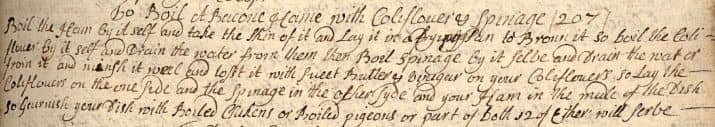 To Boil A Beacone Hame with Coliflower & Spinage / 207 /
Boil the Ham by it self and take the Skin of it and Lay it in a Dryping Pan to Broun it so boil the Coli-
flower by it self and Drain the water from them then Boil Spinage by it selbe and Drain the water
from it and minsh it well and tost it with Sweet Butter & Vinegar on your Coliflowers so Lay the
Coliflowers on the one Side and the Spinage in the other Syde and your Ham in the midle of the Dish
so Gurnish your Dish with Boiled Chikens or Boiled pigeons or part of Both 12 of Ether will serbe